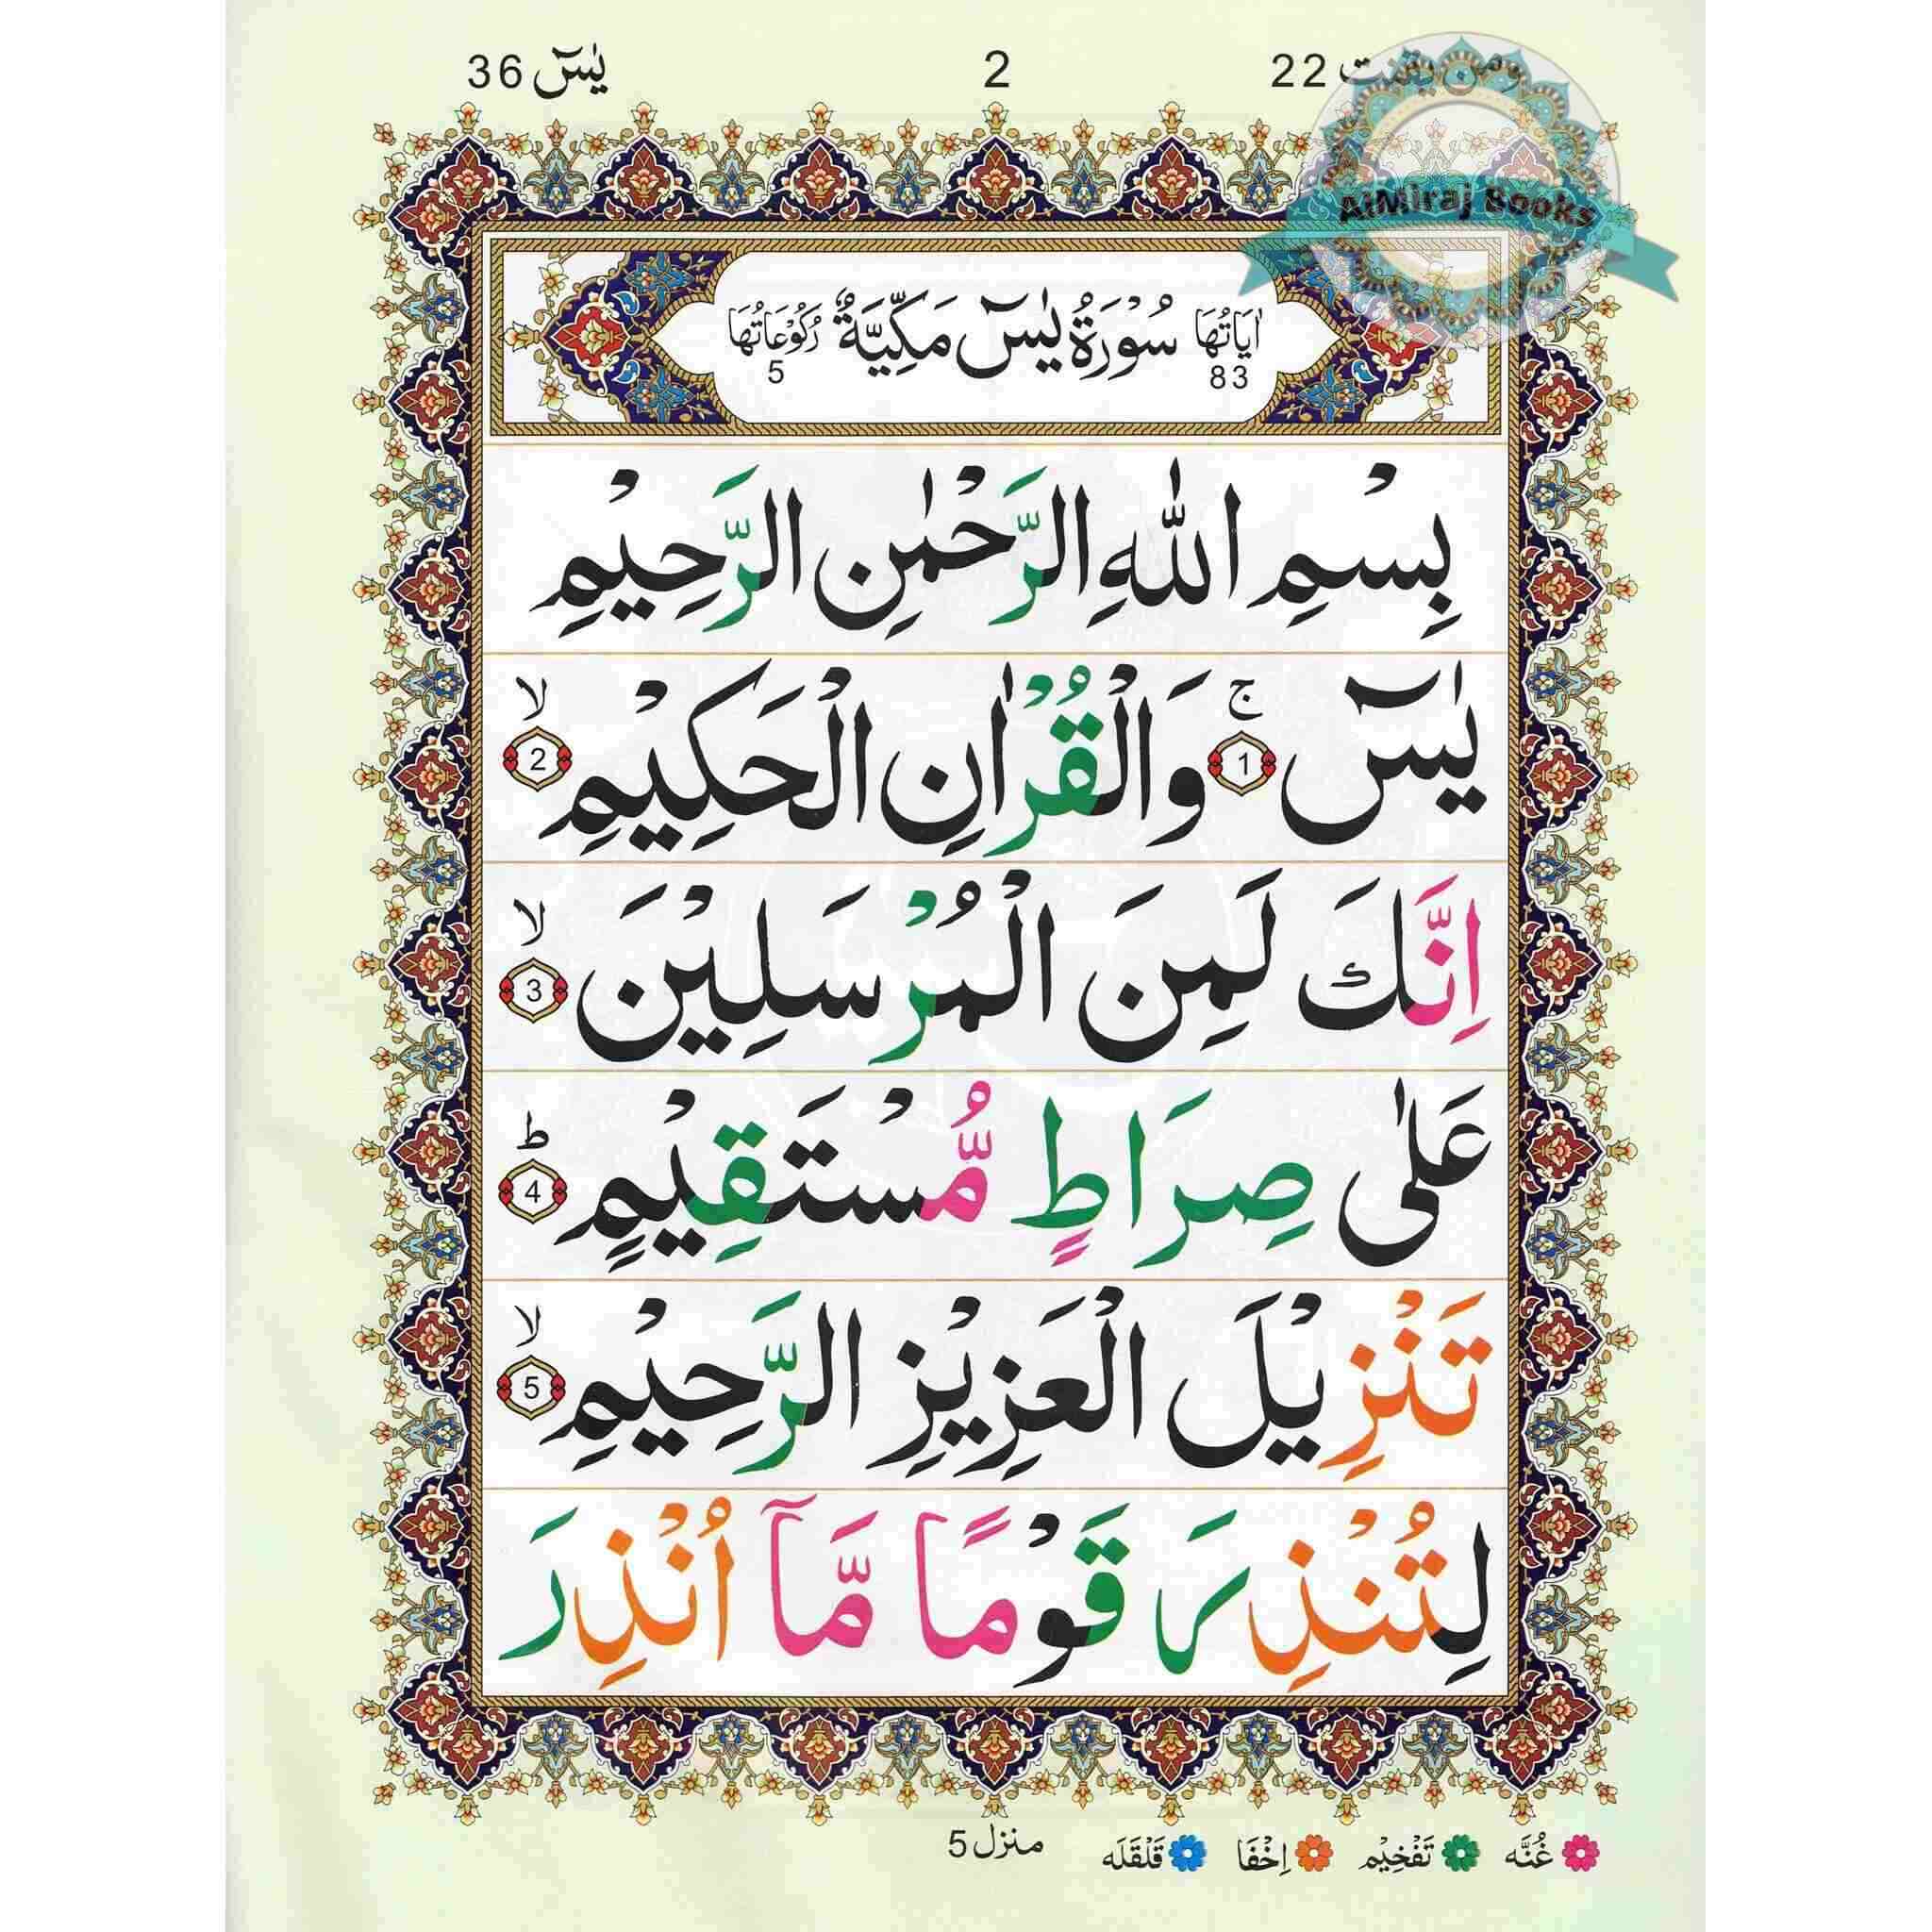 ومن يقنت 22
2
يٰسٓ 36
AlMiraj Books
اٰيَاتُهَا 83 سُوْرَةُ يٰسٓ مَكِّيَّةٌ رُكُوْعَاتُهَا 5
بِسْمِ اللّٰهِ الرَّحْمٰنِ الرَّحِيْمِ
يٰسٓ ۚ 1 وَالْقُرْاٰنِ الْحَكِيْمِ ۙ 2
اِنَّكَ لَمِنَ الْمُرْسَلِيْنَ ۙ 3
عَلٰى صِرَاطٍ مُّسْتَقِيْمٍ ؕ 4
تَنْزِيْلَ الْعَزِيْزِ الرَّحِيْمِ ۙ 5
لِتُنْذِرَ قَوْمًا مَّآ اُنْذِرَ
غُنَّه تَفْخِيْم اِخْفَا قَلْقَلَه
منزل 5